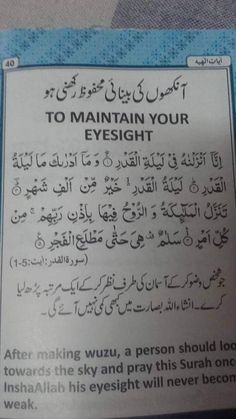 40
آیاتِ الٰہیہ
آنکھوں کی بینائی محفوظ رکھنی ہو
TO MAINTAIN YOUR
EYESIGHT
اِنَّآ اَنْزَلْنٰهُ فِیْ لَیْلَةِ الْقَدْرِ ۝ وَ مَآ اَدْرٰىكَ مَا لَیْلَةُ
الْقَدْرِ ۝ لَیْلَةُ الْقَدْرِ خَیْرٌ مِّنْ اَلْفِ شَهْرٍ ۝
تَنَزَّلُ الْمَلٰٓىِٕكَةُ وَ الرُّوْحُ فِیْهَا بِاِذْنِ رَبِّهِمْ ۚ مِنْ
كُلِّ اَمْرٍ ۝ سَلٰمٌ ۛ هِیَ حَتّٰی مَطْلَعِ الْفَجْرِ ۝
(سورۃ القدر: آیت: 5-1)
جو شخص وضو کر کے آسمان کی طرف نظر کر کے ایک مرتبہ پڑھ لیا
کرے۔ انشاء اللہ بصارت میں بھی کمی نہیں آئے گی۔
After making wuzu, a person should loo
towards the sky and pray this Surah once
InshaAllah his eyesight will never becom
weak.